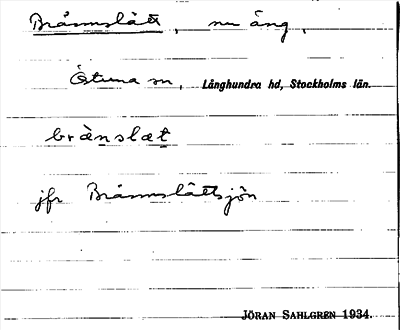 Brännslätt, nu äng,
Östuna sn, Långhundra hd, Stockholms län.
brä̀nslæt
jfr Brännslättsjön
JÖRAN SAHLGREN 1934.